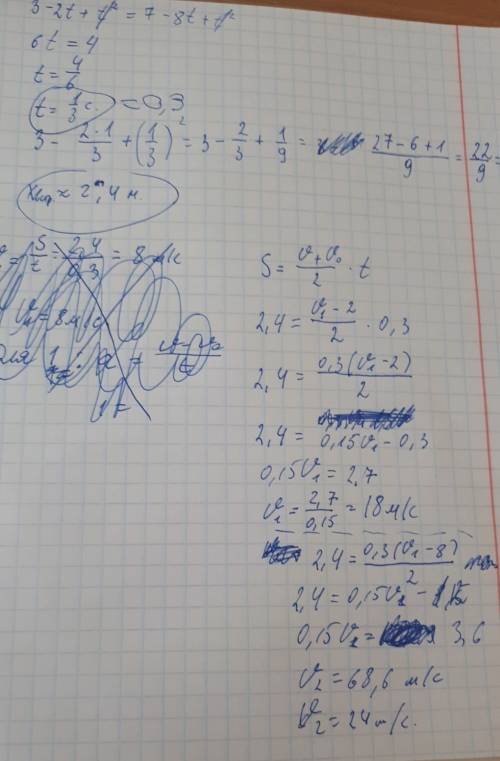 3-2t+t²=7-8t+t²
6t=4
t=4/6
t=1/3 c. =0,3
3- 2·1/3 +(1/3)²=3-2/3+1/9= 27-6+1/9=22/9=
≈2,4 м.
=S/t=2,4/0,3=8 м/с
=8м/с
для 1
S=v+v₀/2·t
2,4=v₁-2/2·0,3
2,4=0,3(v₁-2)/2
2,4=0,15v₁-0,3
0,15v₁=2,7
v₁=2,7/0,15=18м/с
2,4=0,3(v₁-8)/2
2,4=0,15v₂-1,2
0,15v₂= 3,6
v₂=68,6 м/с
v₂=24м/с.